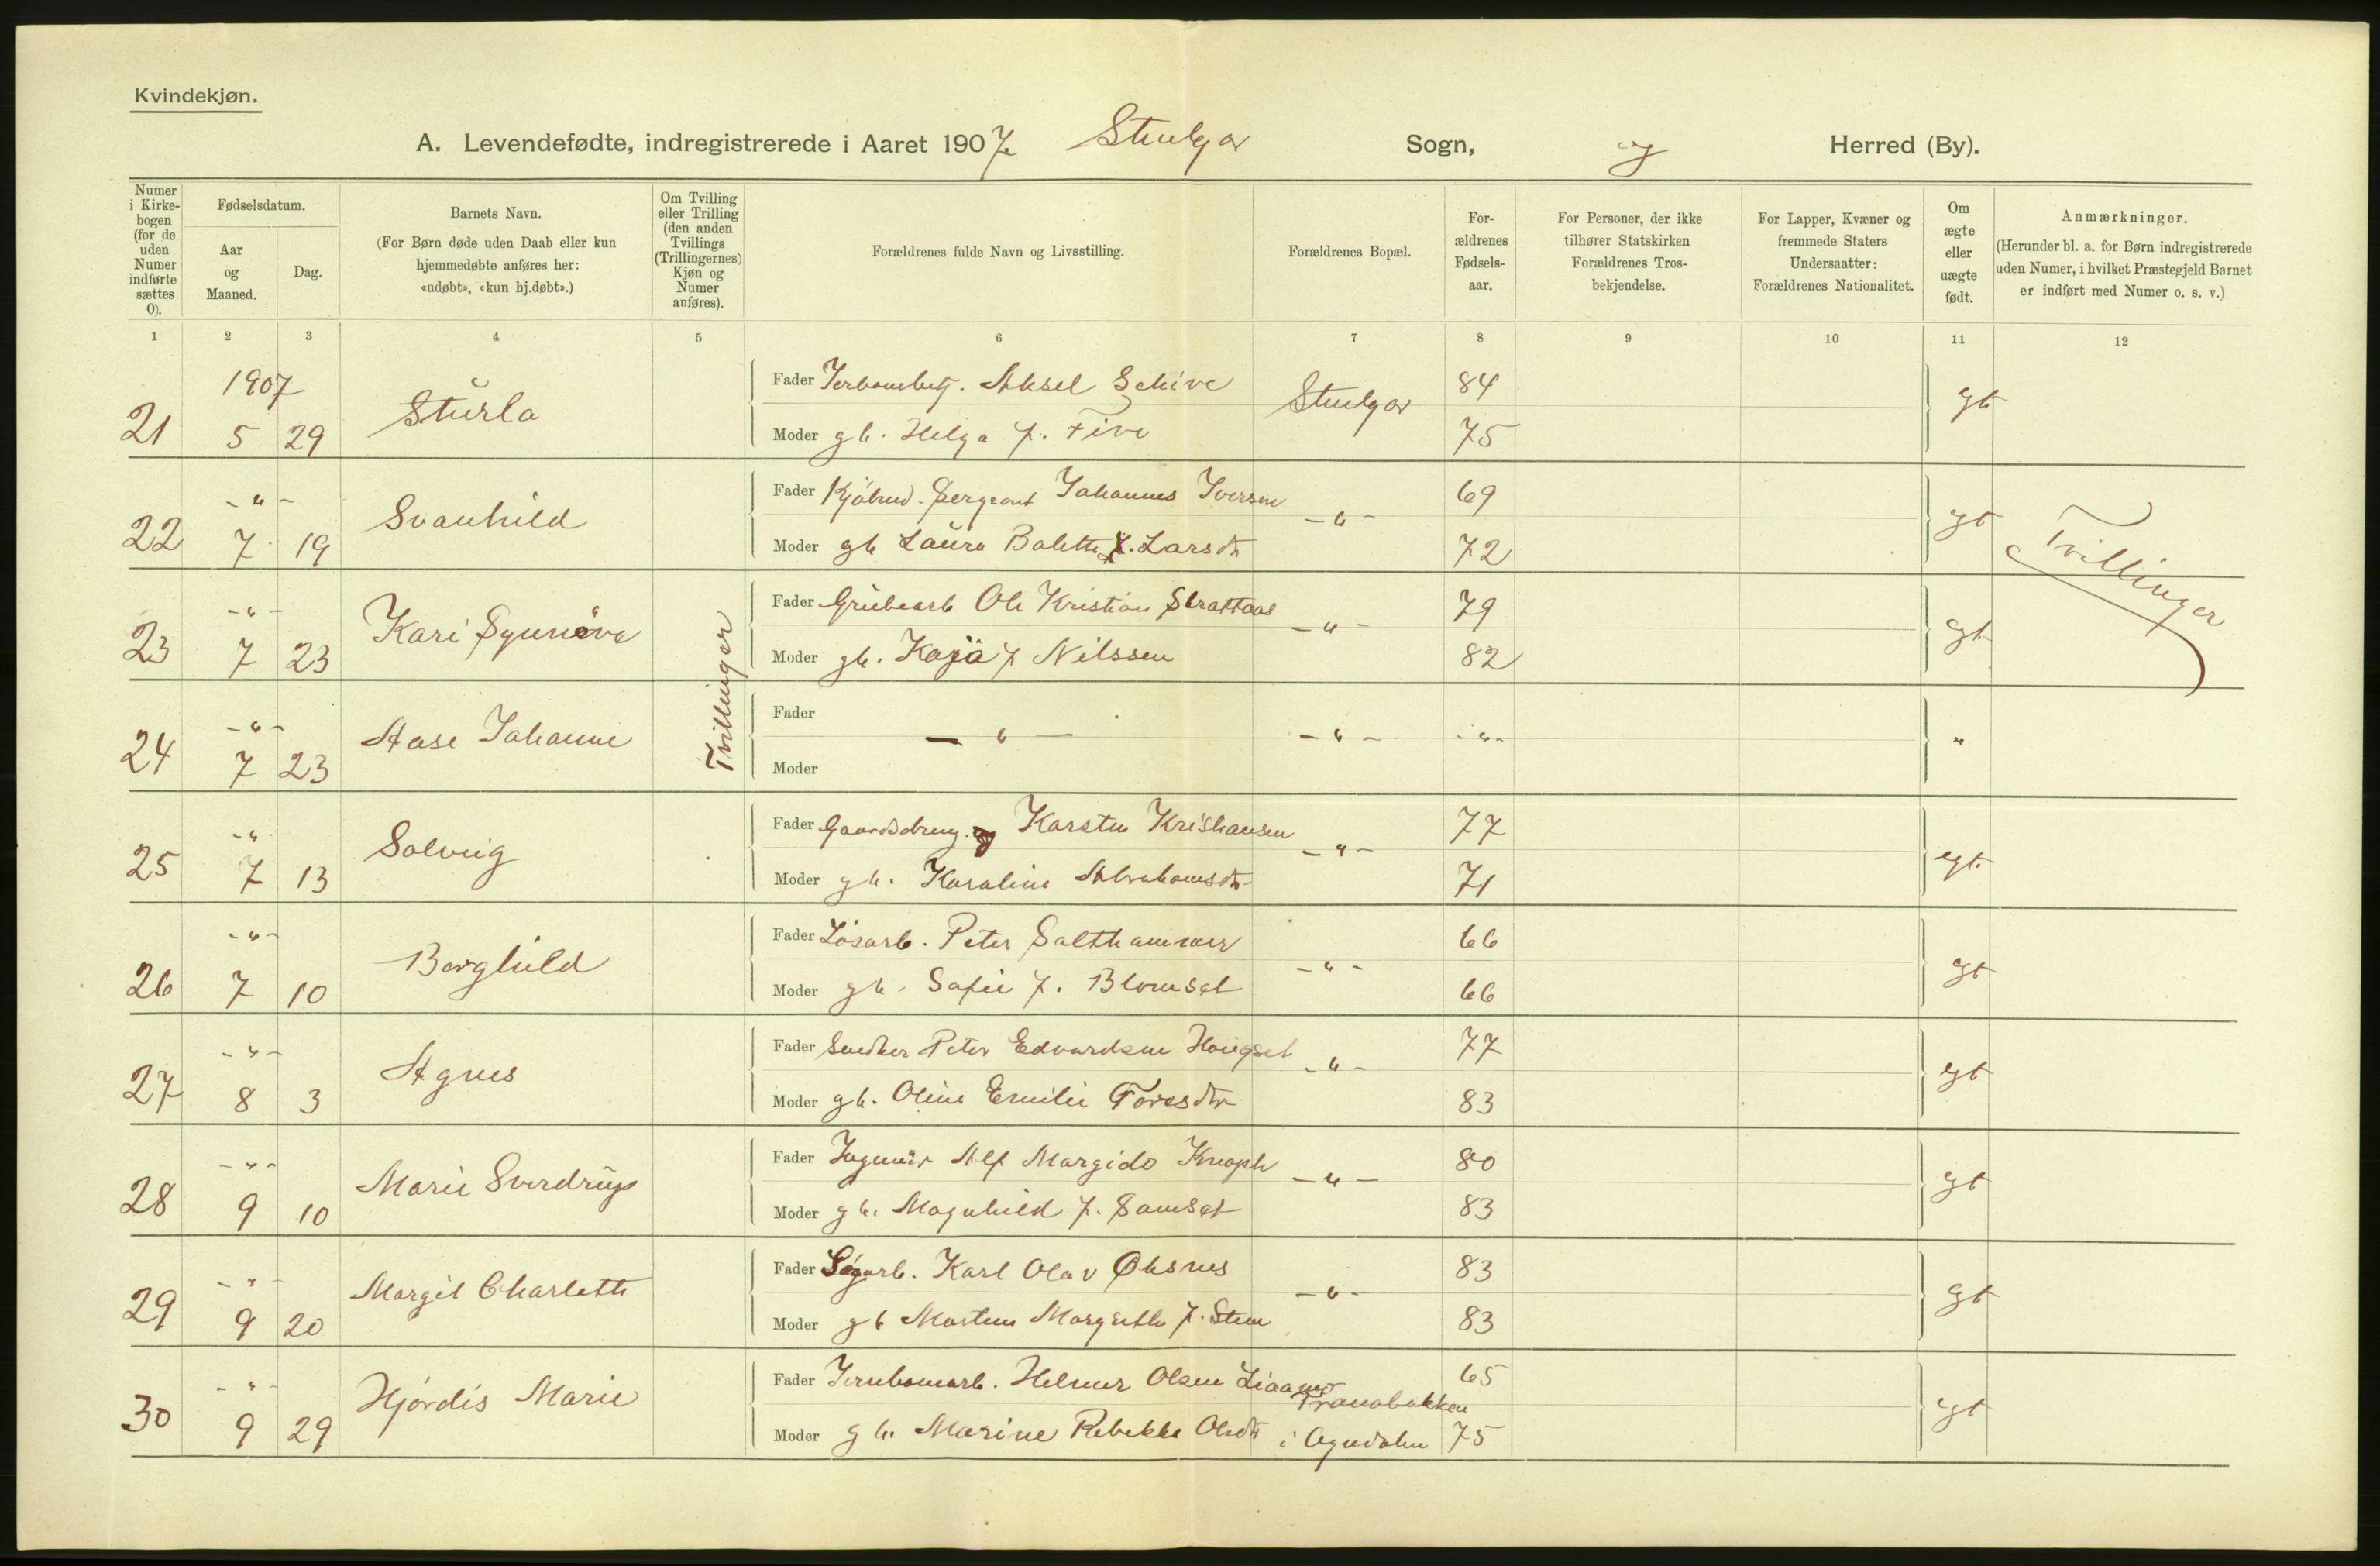 Kvindekjøn.
A. Levendefødte, indregistrerede i Aaret 1907 Stenkjær Sogn, og Herred (By).
Numer i Kirkebogen (for de uden Numer indførte sættes 0).
Fødselsdatum.
Aar og Maaned.
Dag.
Barnets Navn.
(For Børn døde uden Daab eller kun hjemmedøbte anføres her: «udøbt», «kun hj.døbt».)
Om Tvilling eller Trilling (den anden Tvillings (Trillingernes) Kjøn og Numer anføres).
Forældrenes fulde Navn og Livsstilling.
Forældrenes Bopæl.
For-ældrenes Fødsels-aar.
For Personer, der ikke tilhører Statskirken Forældrenes Tros-bekjendelse.
For Lapper, Kvæner og fremmede Staters Undersaatter: Forældrenes Nationalitet.
Om ægte eller uægte født.
Anmærkninger.
(Herunder bl. a. for Børn indregistrerede uden Numer, i hvilket Præstegjeld Barnet er indført med Numer o. s. v.)
1 2 3 4 5 6 7 8 9 10 11 12
1907
21 5 29 Sturla
Fader Aksel Schive 84
Moder gh. Helga f. Five 75
egt
-"-
22 7 19 Svanhild
Fader Sergeant Johannes Iversen -"- 69
Moder gh Laura Bolette Larsdtr 72
egt
Tvillinger
-"-
23 7 23 Kari Synnöve
Tvillinger
Fader Grubearb Ole Kristian -"- 79
Moder gh. Kaja f Nilssen 82
egt
-"-
24 7 23 Aase Johanne
Fader -"- -"- -"-
Moder
"
-"-
25 7 13 Solveig
Fader Karsten Kristiansen -"- 77
Moder gh. Karoline Abrahamsdtr 71
egt.
-"-
26 7 10 Borghild
Fader Løsarb. Peter Salthammer -"- 66
Moder gh. Sofie f. Blomset 66
egt
-"-
27 8 3 Agnes
Fader Snedker Peter Edvardsen Hougset -"- 77
Moder gh. Oline Emilie Toresdtr 83
egt
-"-
28 9 10 Marie Sverdrup
Fader Ingeniör Alf Margido Knoph -"- 80
Moder gh. Magnhild f. Samset 83
egt
-"-
29 9 20 Margit Charlotte
Fader Sagarb. Karl Olav Øksnes -"- 83
Moder gh Margrethe f. Steen 83
egt
-"-
30 9 29 Hjördis Marie
Fader Jernbanearb. Helmer Olsen 65
Tranabakken
Moder gh. Marine Rebekka Olsdtr i Ogndalen 75
egt